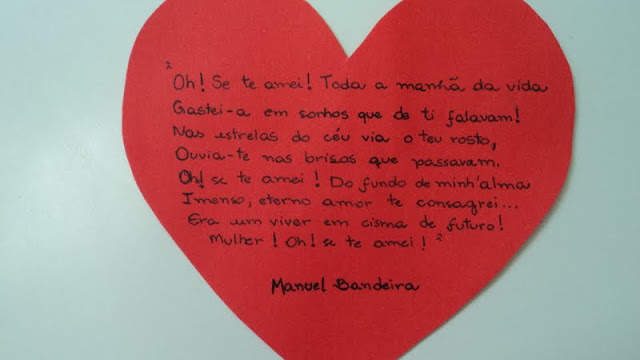 "Oh! Se te amei! Toda a manhã da vida
Gastei-a em sonhos que de ti falavam!
Nas estrelas do céu via o teu rosto,
Ouvia-te nas brisas que passavam.
Oh! se te amei! Do fundo de minh'alma
Imenso, eterno amor te consagrei...
Era um viver em cisma de futuro!
Mulher! Oh! se te amei!"
Manuel Bandeira